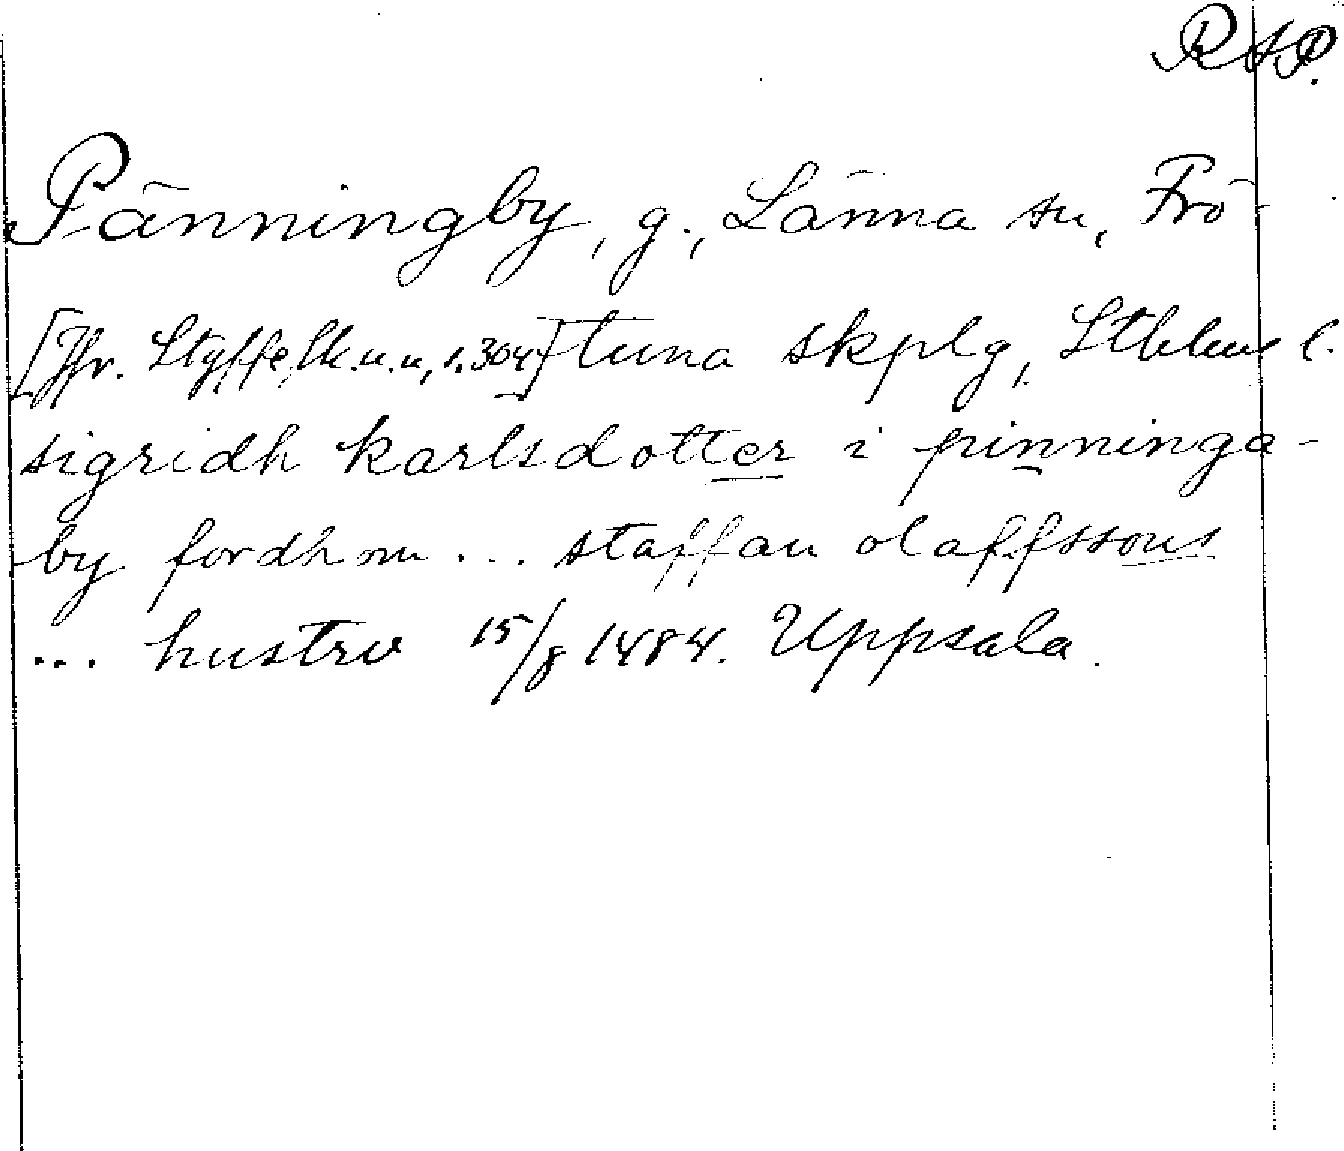 RAP.
Pänningby, g., Länna sn, Frö-
[Jfr. Styffe, Sk.u.u, s. 304] tuna skplg, Sthlms l.
sigridh karlsdotter i pinninga-
by fordhom ... staffan olaffssons
... hustrv 15/8 1484. Uppsala.